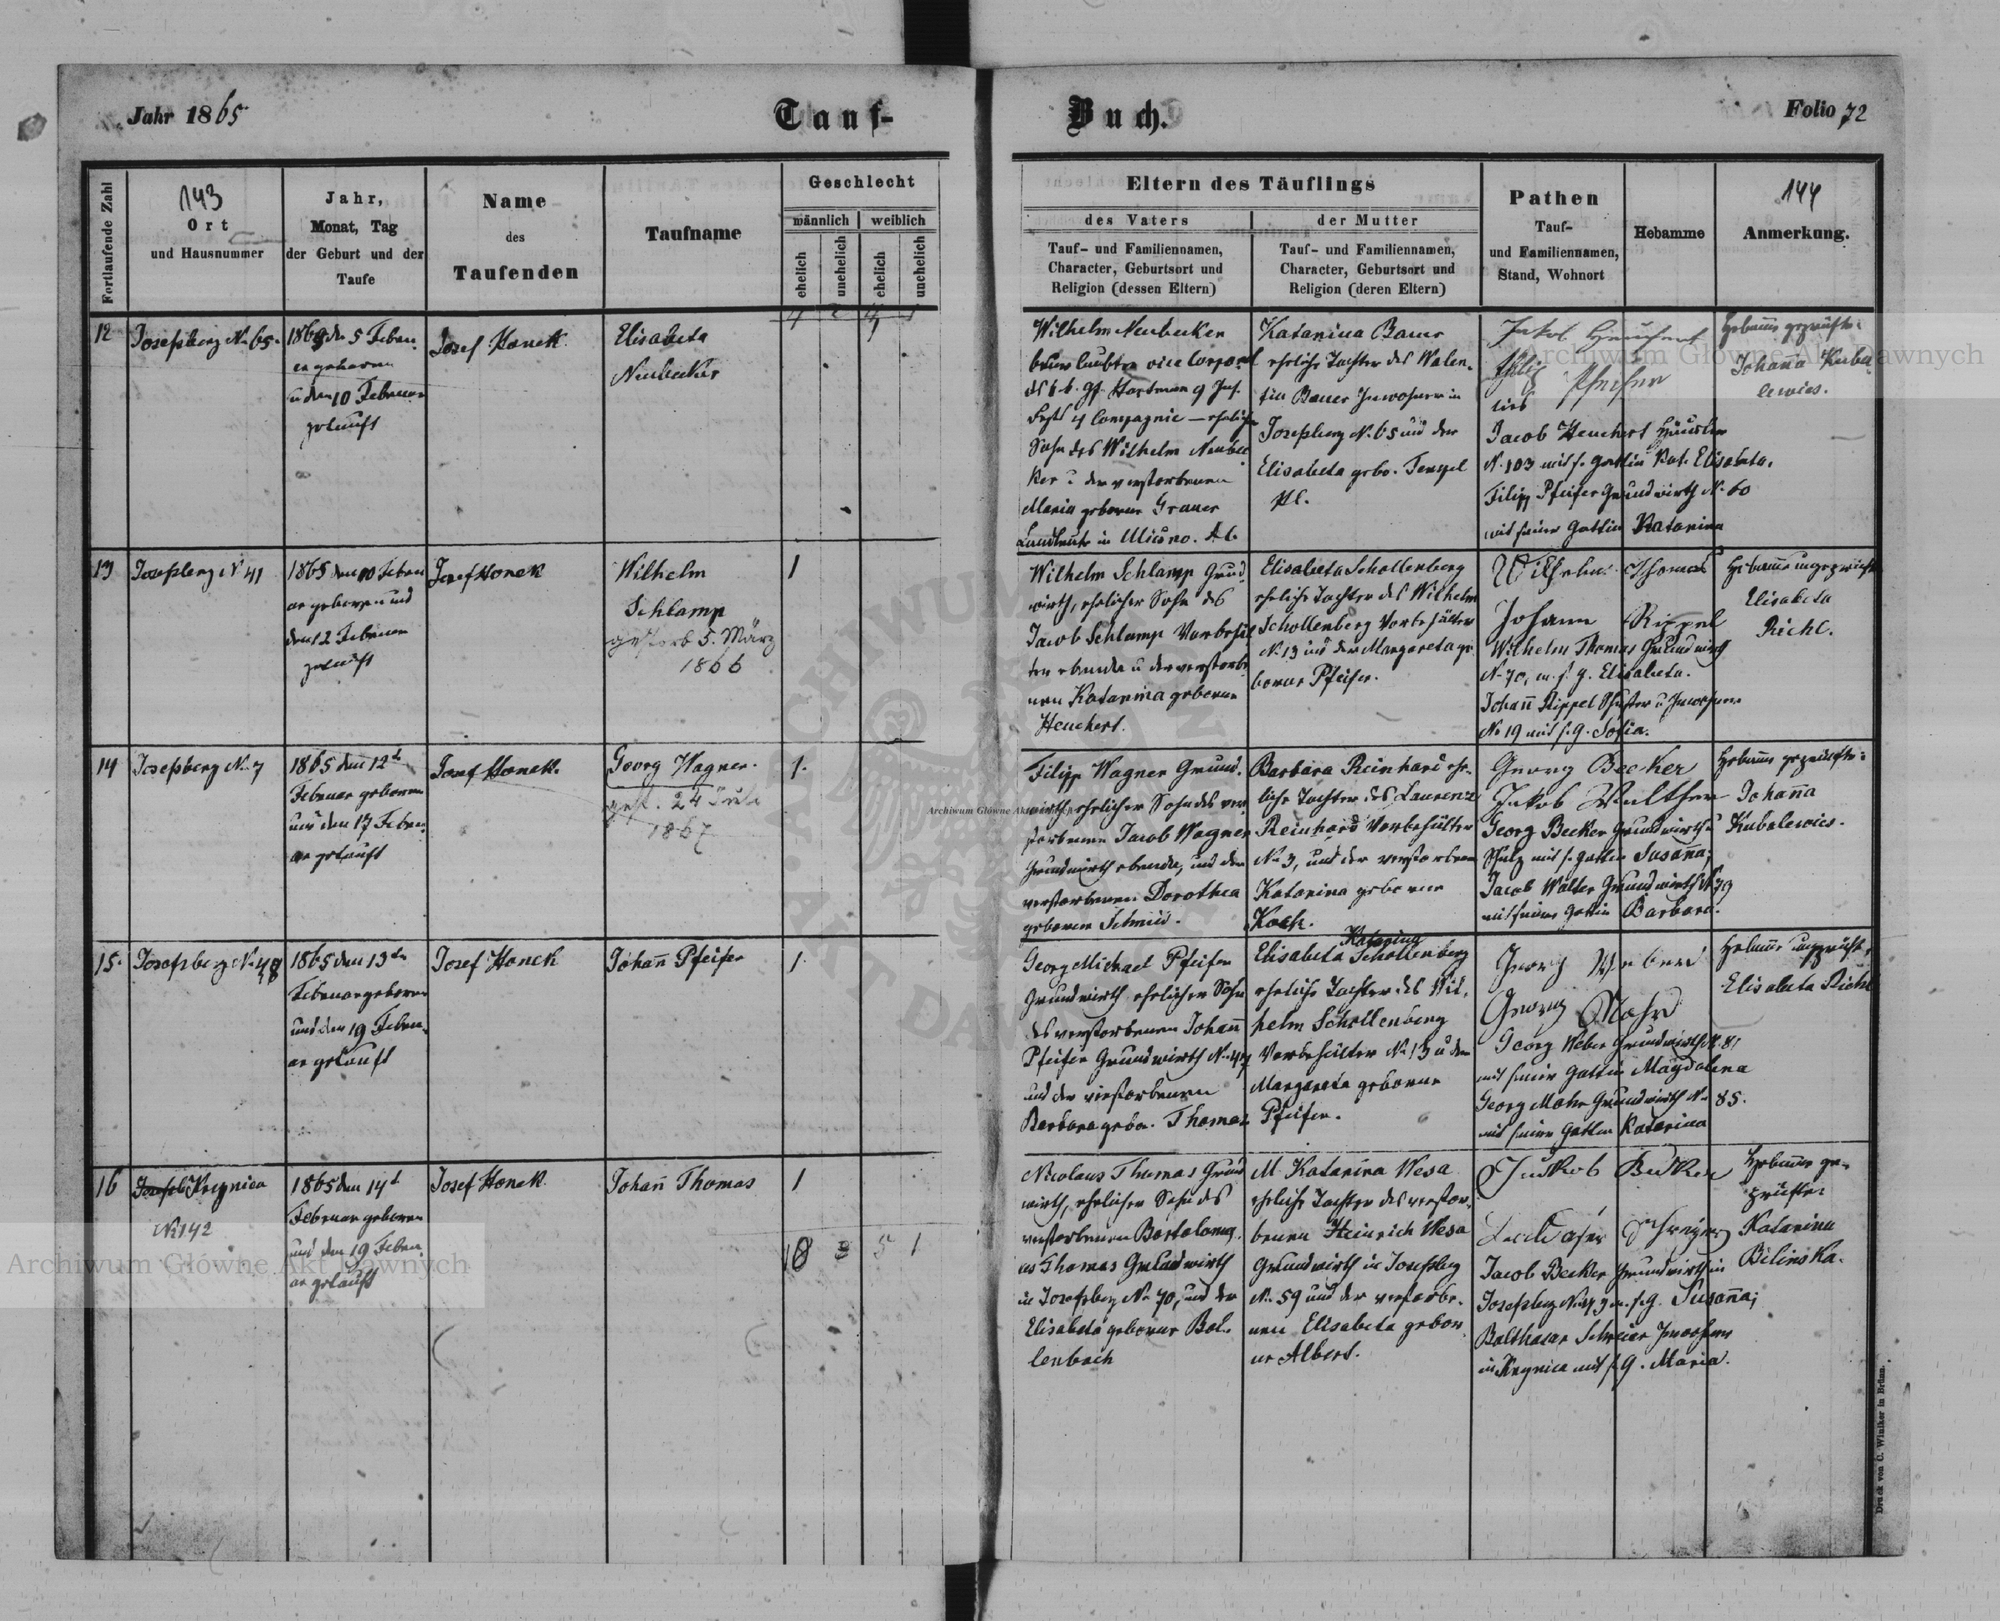 Jahr 1865
Tauf-
Buch.
Folio 72
Fortlaufende Zahl
143
Ort
und Hausnummer
Jahr,
Monat, Tag
der Geburt und der
Taufe
Name
des
Taufenden
Taufname
Geschlecht
männlich
weiblich
ehelich
unehelich
ehelich
unehelich
Eltern des Täuflings
des Vaters
Tauf- und Familiennamen,
Character, Geburtsort und
Religion (dessen Eltern)
der Mutter
Tauf- und Familiennamen,
Character, Geburtsort und
Religion (deren Eltern)
Pathen
Tauf-
und Familiennamen,
Stand, Wohnort
Hebamme
144
Anmerkung.
12
Josefsberg No 65.
1865 den 5 Febru
ar geboren
u den 10 Februar
getauft
Josef Honek
Elisabeta
Neubecker
Wilhelm Neubecker
Sohn des Wilhelm Neubec
ker u der verstorbenen
Maria geborne Grauer
Katarina Bauer
eheliche Tochter des Valen
tin Bauer Inwohner in
Josefsberg No 65 und der
Elisabeta gebo.
Jakob Heuchert
Pfeifer
Jacob Heuchert Häusler
No 103 mit s. Gattin Kat. Elisabeta,
Filipp Pfeifer Grundwirth No 60
mit seiner Gattin Katarina
Hebamme geprüfte
Johanna Kuba
lewics.
13
Josefsberg No 41
1865 den 10 Febru
ar geboren und
den 12 Februar
getauft
Josef Honek
Wilhelm
Schlamp
gestorb 5. März
1866
1
Wilhelm Schlamp Grund
wirth, ehelicher Sohn des
Jacob Schlamp Vorbehäl
ter ebenda u der verstorbe
nen Katarina geborne
Heuchert.
Elisabeta Schollenberg
eheliche Tochter des Wilhelm
Schollenberg Vorbehälter
No 13 und der Margareta ge
borne Pfeifer.
Wilhelm Thomas
Johann Rippel
Wilhelm Thomas Grundwirth
No 70, m. s. g. Elisabeta.
Johann Rippel Schuster u Inwohner
No 19 mit s. g. Sofia.
Hebamme ungeprüft
Elisabeta
Richl.
14
Josefsberg No 7
1865 den 12t
Februar geboren
und den 17 Febru
ar getauft
Josef Honek.
Georg Wagner.
gest. 24 Juli
1867
1.
Filipp Wagner Grund
wirth, ehelicher Sohn des ver
storbenen Jacob Wagner
Grundwirth ebenda, und der
verstorbenen Dorothea
geborene Schmid.
Barbara Reinhard ehe
liche Tochter des Laurenz
Reinhard Vorbehälter
No 3, und der verstorbenen
Katarina geborene
Koch.
Georg Becker
Jakob Walther
Georg Becker Grundwirth u
Schulz mit s. Gattin Susanna;
Jacob Walter Grundwirth No 79
mit seiner Gattin Barbara.
Hebamme geprüfte
Johanna
Kubalewics.
15.
Josefsberg No 48
1865 den 13ten
Februar geboren
und den 19 Febru
ar getauft
Josef Honek
Johann Pfeifer
1.
Georg Michael Pfeifer
Grundwirth ehelicher Sohn
des verstorbenen Johann
Pfeifer Grundwirth No 47
und der verstorbenen
Barbara gebor. Thomas
Katarina
Elisabeta Schollenberg
eheliche Tochter des Wil
helm Schollenberg
Vorbehälter No 13 u der
Margareta geborne
Pfeifer.
Georg Weber
Georg Mohr
Georg Weber Grundwirth No 81
mit seiner Gattin Magdalena
Georg Mohr Grundwirth No 85.
mit seiner Gattin Katarina
Hebamme ungeprüft
Elisabeta Richl
16
Josefsb Kregnica
No 142
1865 den 14t
Februar geboren
und den 19 Febru
ar getauft
Josef Honek
Johann Thomas
1
5 1
Nicolaus Thomas Grund
wirth, ehelicher Sohn des
verstorbenen Bartolomä
us Thomas Grundwirth
in Josefsberg No 70, und der
Elisabeta geborne Bol
lenbach
M. Katarina Wesa
eheliche Tochter des verstor
benen Heinrich Wesa
Grundwirth in Josefsberg
No 59 und der verstorbe
nen Elisabeta gebor
ne Albert.
Jakob Becker
Jacob Becker Grundwirth in
Josefsberg No 49 m. s. g. Susanna;
Balthasar Schreier Inwohner
in Kregnica mit s. g. Maria.
Hebamme ge
prüfte
Katarina
Bilinska.
Druck von C. Winiker in Brünn.
Archiwum Główne Akt Dawnych
Archiwum Główne Akt Dawnych